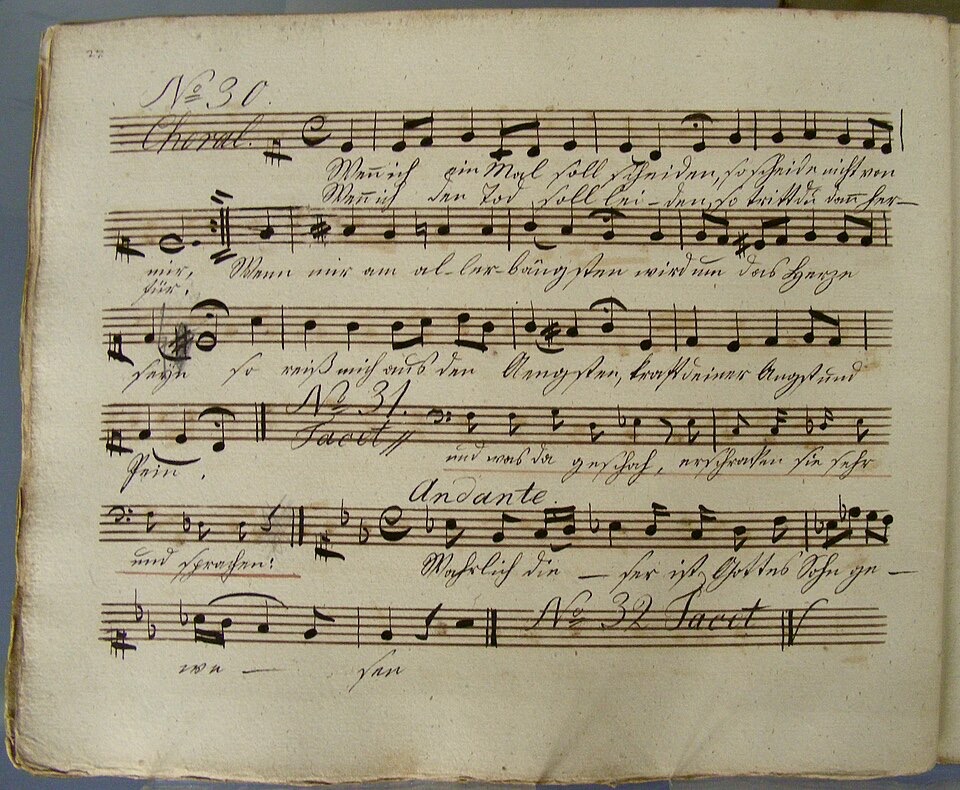 22
No 30.
Choral.
Wenn ich ein Mal soll scheiden, so scheide nicht von
Wenn ich den Tod soll lei - den, so tritt du dann her-
mir, Wenn mir am al-ler-bängsten wird um das Herze
für:
seyn so reiß mich aus den Aengsten, kraft deiner Angst und
No 31.
Tacet
und was da geschah, erschraken sie sehr
Pein.
Andante.
und sprachen: Wahrlich die - ser ist Gottes Sohn ge -
No 32 Tacet
we - sen